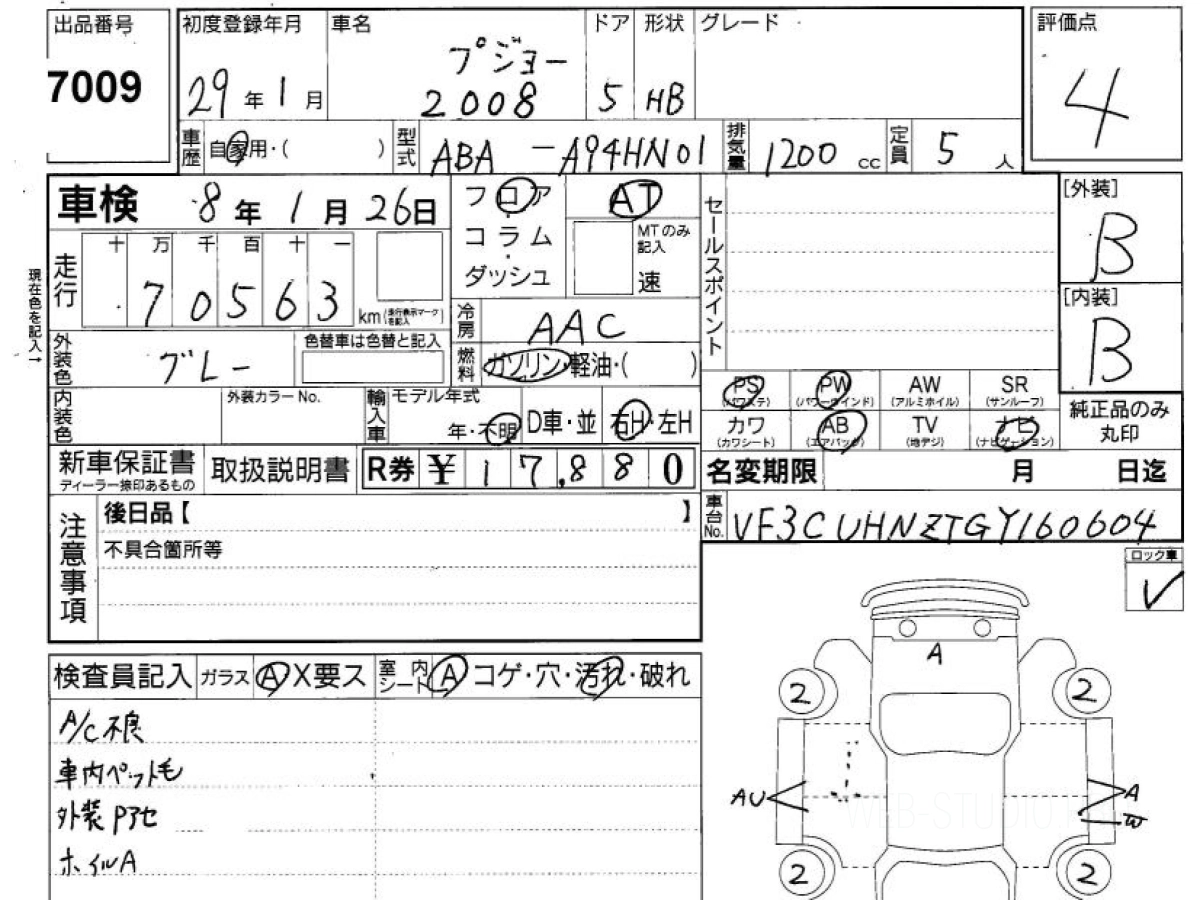 出品番号
7009
初度登録年月
29年1月
車名
プジョー
2008
ドア
5
形状
HB
グレード
評価点
4
車歴
自家用・( )
型式
ABA-A94HN01
排気量
1200cc
定員
5人
車検 8年1月26日
フロア・コラム・ダッシュ
AT
MTのみ記入
速
セールスポイント
[外装]
B
[内装]
B
現在色を記入→
走行
十万千百十一
70563
km(走行表示マークを記入)
冷房
AAC
燃料
ガソリン・軽油・( )
外装色
グレー
色替車は色替と記入
内装色
外装カラーNo.
輸入車
モデル年式
年・不明
D車・並
右H・左H
PS
(パワステ)
PW
(パワーウインド)
AW
(アルミホイル)
SR
(サンルーフ)
カワ
(カワシート)
AB
(エアバック)
TV
(地デジ)
ナビ
(ナビゲーション)
純正品のみ
丸印
新車保証書
ディーラー捺印あるもの
取扱説明書
R券 ¥17,880
名変期限 月 日迄
注意事項
後日品【 】
不具合箇所等
車台No.
VF3CUHNZTGY160604
ロック車
検査員記入
ガラス
A X要ス
室内
シート
A コゲ・穴・汚れ・破れ
A/C不良
車内ペット毛
外装Pアセ
ホイルA
A
2
2
AU
A
W
2
2
WEB-STUDIO